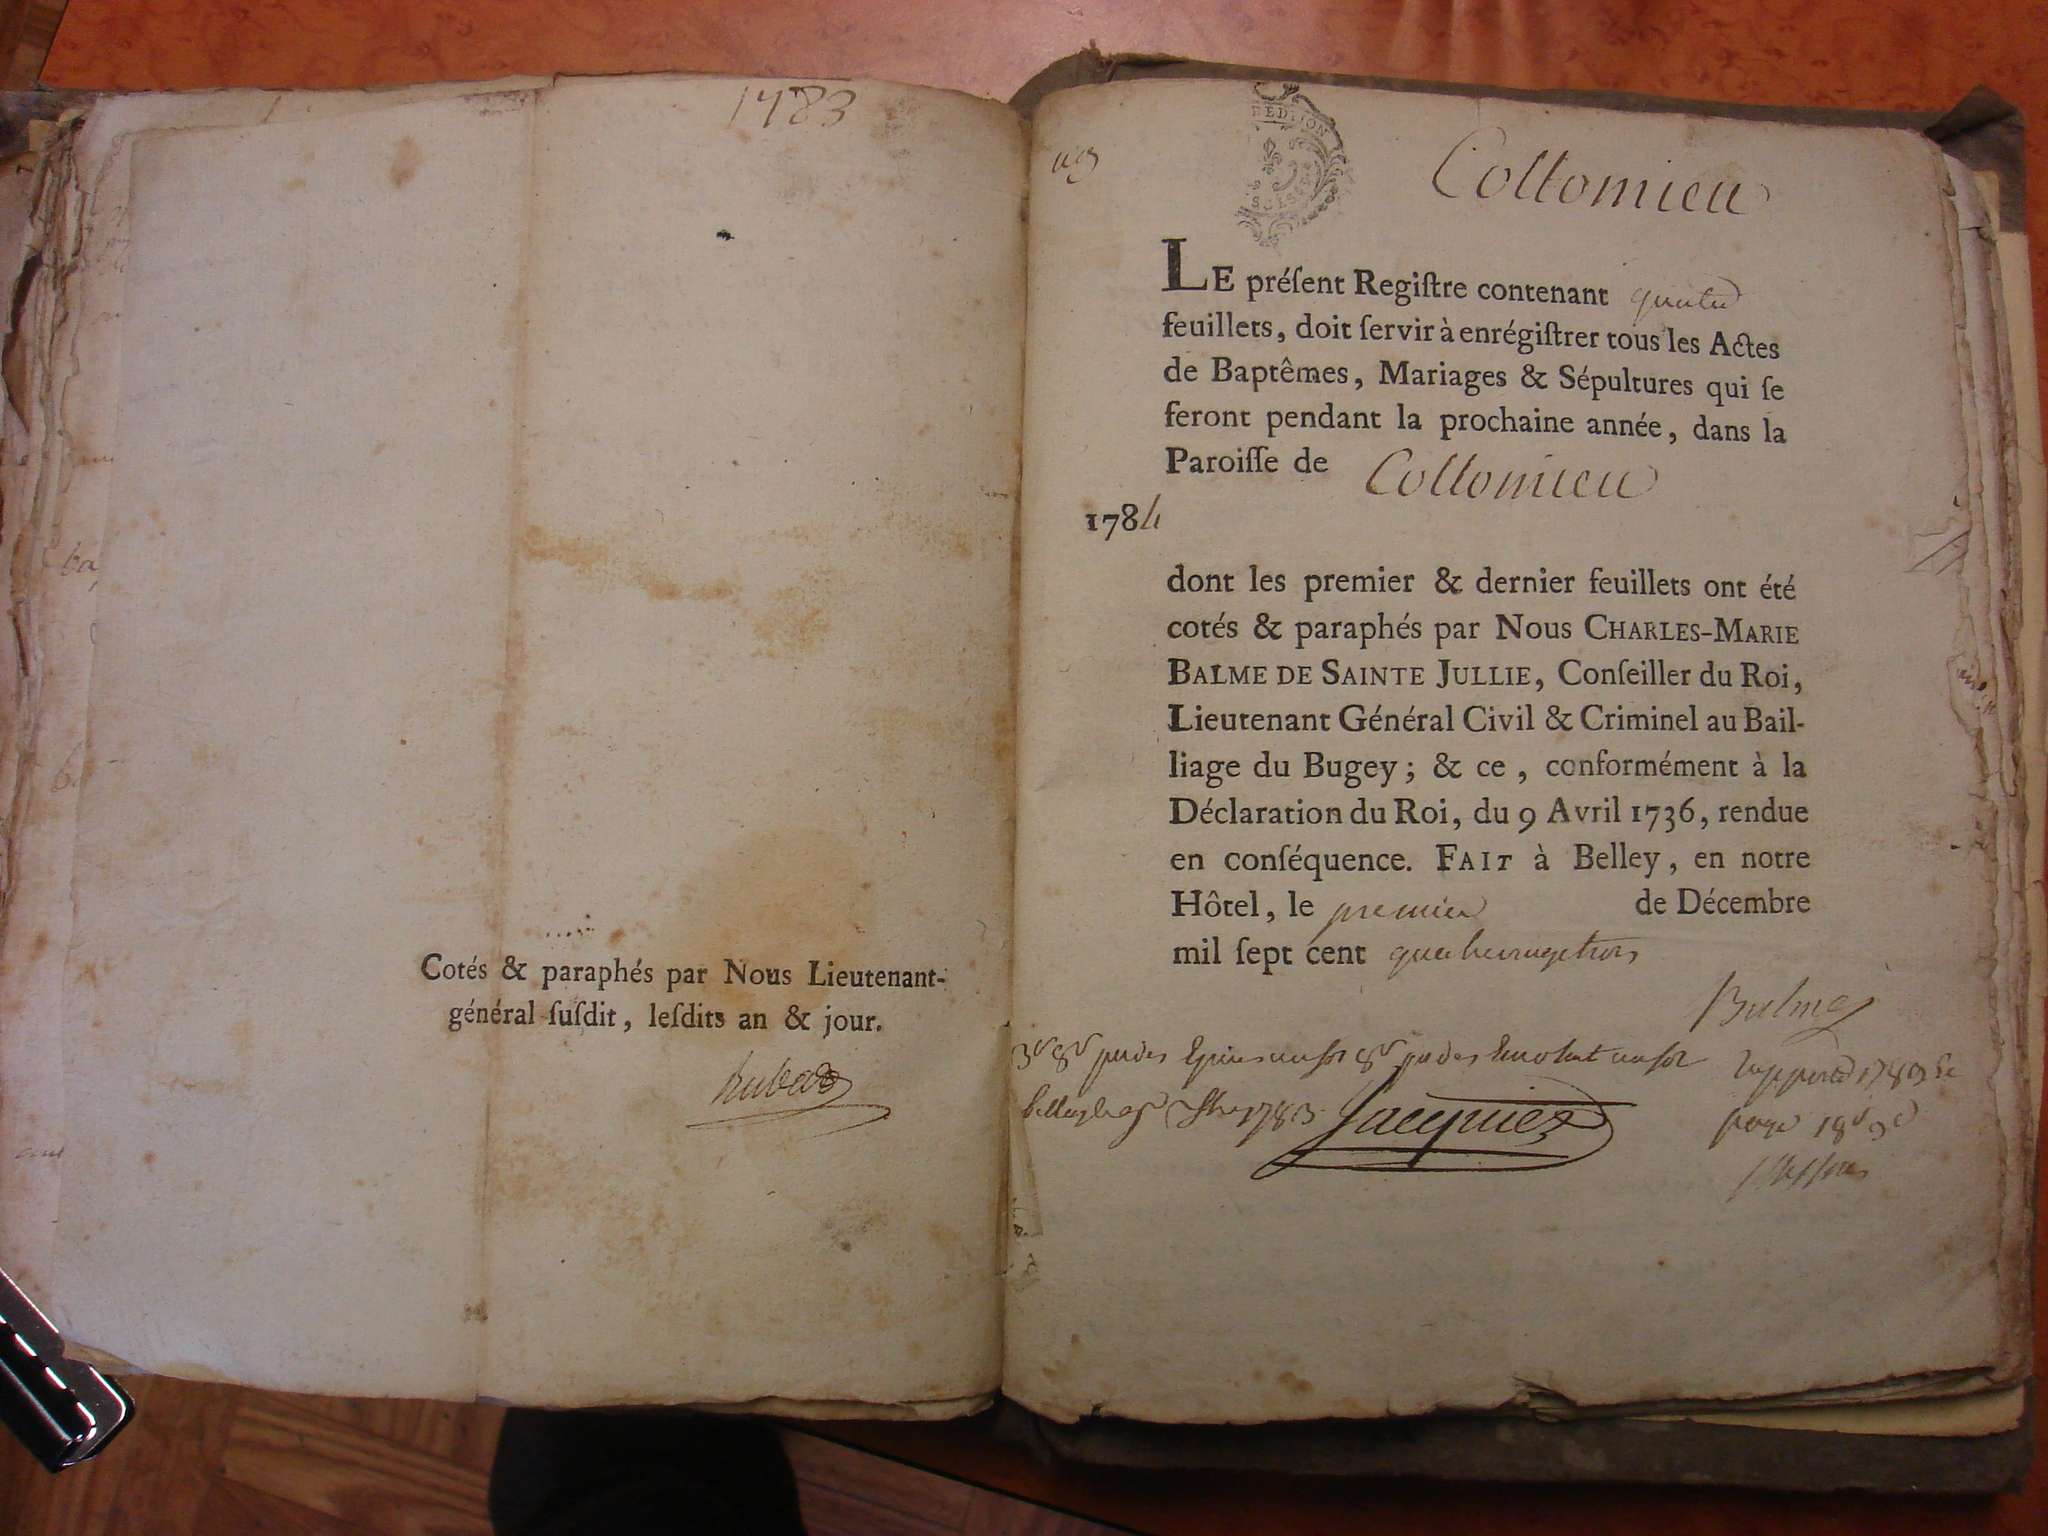 1783
Cotés & paraphés par Nous Lieutenant-
général suſdit, leſdits an & jour.
Collomieu
LE préſent Regiſtre contenant quatre
feuillets, doit ſervir à enrégiſtrer tous les Actes
de Baptêmes, Mariages & Sépultures qui ſe
feront pendant la prochaine année, dans la
Paroiſſe de Collomieu
1784
dont les premier & dernier feuillets ont été
cotés & paraphés par Nous CHARLES-MARIE
BALME DE SAINTE JULLIE, Conſeiller du Roi,
Lieutenant Général Civil & Criminel au Bail-
liage du Bugey ; & ce, conformément à la
Déclaration du Roi, du 9 Avril 1736, rendue
en conſéquence. FAIT à Belley, en notre
Hôtel, le premier de Décembre
mil ſept cent quatrevingttrois
Balme
1783 Jacquier